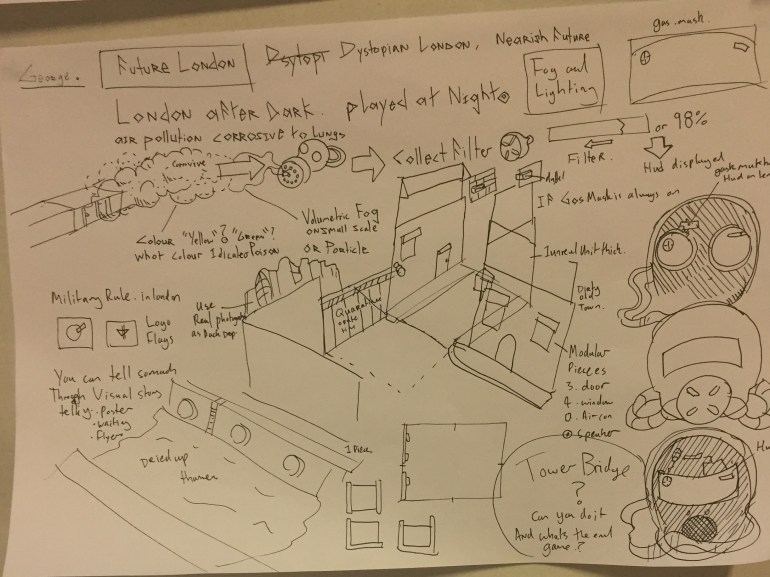 George.
Future London
Dystopian London, Nearish Future
gas mask.
Fog and
Lighting
London after Dark. played at Night
air pollution corrosive to lungs
Collect Filter
or 98%
Filter.
Hud displayed
If Gas Mask is always on
Volumetric Fog
on small scale
or Particle
Colour "Yellow"? "Green"?
what colour Idicates Poison
1 unreal unit thick.
Dirty
old
Town.
Military Rule. in london
Logo
Flags
Use
Real photograph
as Back Drop
Quarantine
You can tell somuch
Through Visual story
telling. poster
. waiting
. flyers
Modular
Pieces
3. door
4. window
0. Air con
speaker
Dried up
thames
1 Piece
Tower Bridge
?
Can you do it
And whats the end
game?